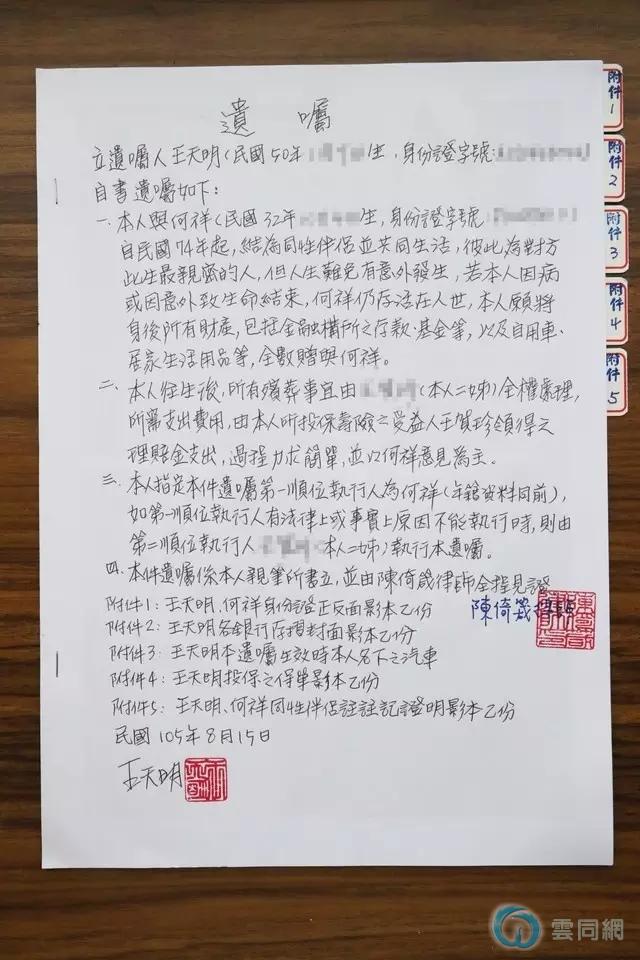 遺囑
立遺囑人王天明(民國50年 生,身份證字號:
自書遺囑如下:
一、本人與何祥(民國32年 生,身份證字號:
自民國74年起,結為同性伴侶並共同生活,彼此為對方
此生最親密的人,但人生難免有意外發生,若本人因病
或因意外致生命結束,何祥仍存活在人世,本人願將
身後所有財產,包括金融機構所之存款、基金等,以及自用車、
居家生活用品等,全數贈與何祥。
二、本人往生後,所有殯葬事宜由 (本人二姊)全權處理,
所需支出費用,由本人所投保壽險之受益人王 珍領得之
理賠金支出,過程力求簡單,並以何祥意見為主。
三、本人指定本件遺囑第一順位執行人為何祥(年籍資料同前),
如第一順位執行人有法律上或事實上原因不能執行時,則由
第二順位執行人 本人二姊)執行本遺囑。
四、本件遺囑係本人親筆所書立,並由陳倚箴律師全程見證
附件1:王天明、何祥身份證正反面影本乙份
陳倚箴
附件2:王天明各銀行存摺封面影本乙份
附件3:王天明本遺囑生效時本人名下之汽車
附件4:王天明投保之保單影本乙份
附件5:王天明、何祥同性伴侶註註記證明影本乙份
民國105年8月15日
王天明
附件1
附件2
附件3
附件4
附件5
雲同網